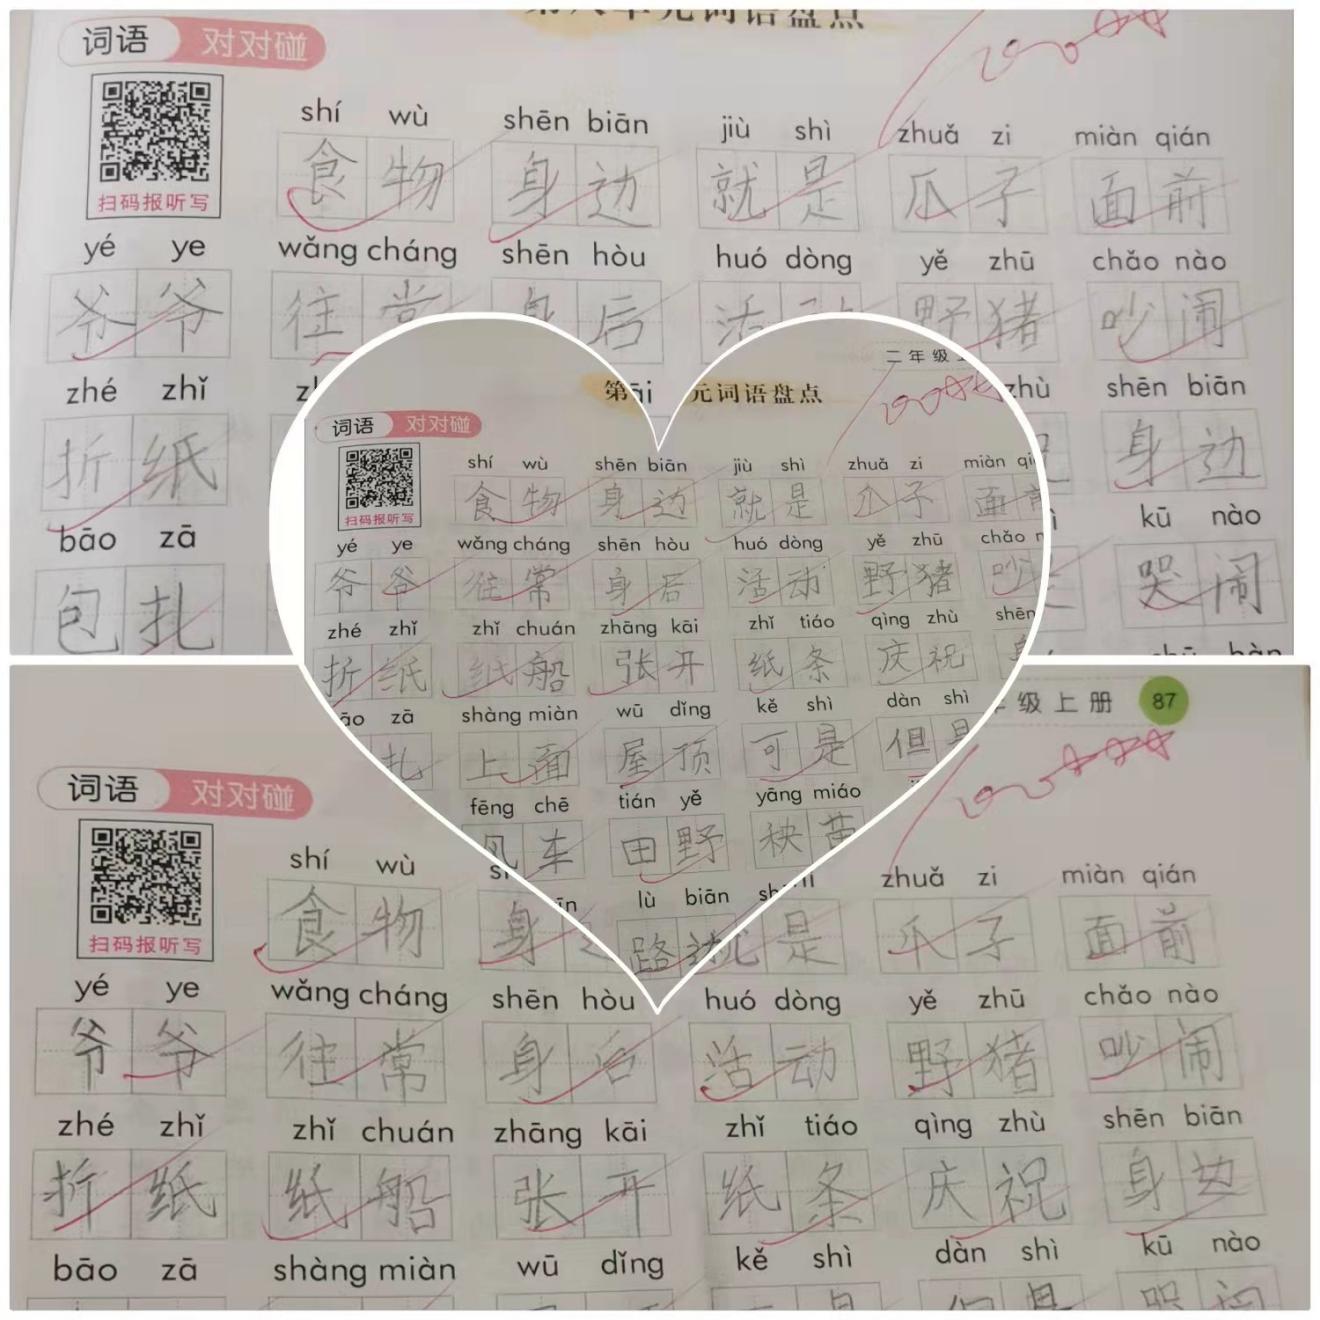 词语盘点
词语 对对碰
shí wù shēn biān jiù shì zhuǎ zi miàn qián
食物 身边 就是 爪子 面前
扫码报听写
yé ye wǎng cháng shēn hòu huó dòng yě zhū chǎo nào
爷爷 往常 身后 活 野猪 吵闹
zhé zhǐ zhù shēn biān
折纸 身边
bāo zā kū nào
包扎 哭闹
二年级
第 元词语盘点
词语 对对碰
shí wù shēn biān jiù shì zhuǎ zi miàn
食物 身边 就是 爪子 面前
扫码报听写
yé ye wǎng cháng shēn hòu huó dòng yě zhū chǎo
爷爷 往常 身后 活动 野猪 吵
zhé zhǐ zhǐ chuán zhāng kāi zhǐ tiáo qìng zhù shēn
折纸 纸船 张开 纸条 庆祝
zā shàng miàn wū dǐng kě shì dàn shì
扎 上面 屋顶 可是 但是
fēng chē tián yě yāng miáo
风车 田野 秧苗
lù biān
路边
级上册 87
词语 对对碰
shí wù zhuǎ zi miàn qián
食物 身 就是 爪子 面前
扫码报听写
yé ye wǎng cháng shēn hòu huó dòng yě zhū chǎo nào
爷爷 往常 身后 活动 野猪 吵闹
zhé zhǐ zhǐ chuán zhāng kāi zhǐ tiáo qìng zhù shēn biān
折纸 纸船 张开 纸条 庆祝 身边
bāo zā shàng miàn wū dǐng kě shì dàn shì kū nào